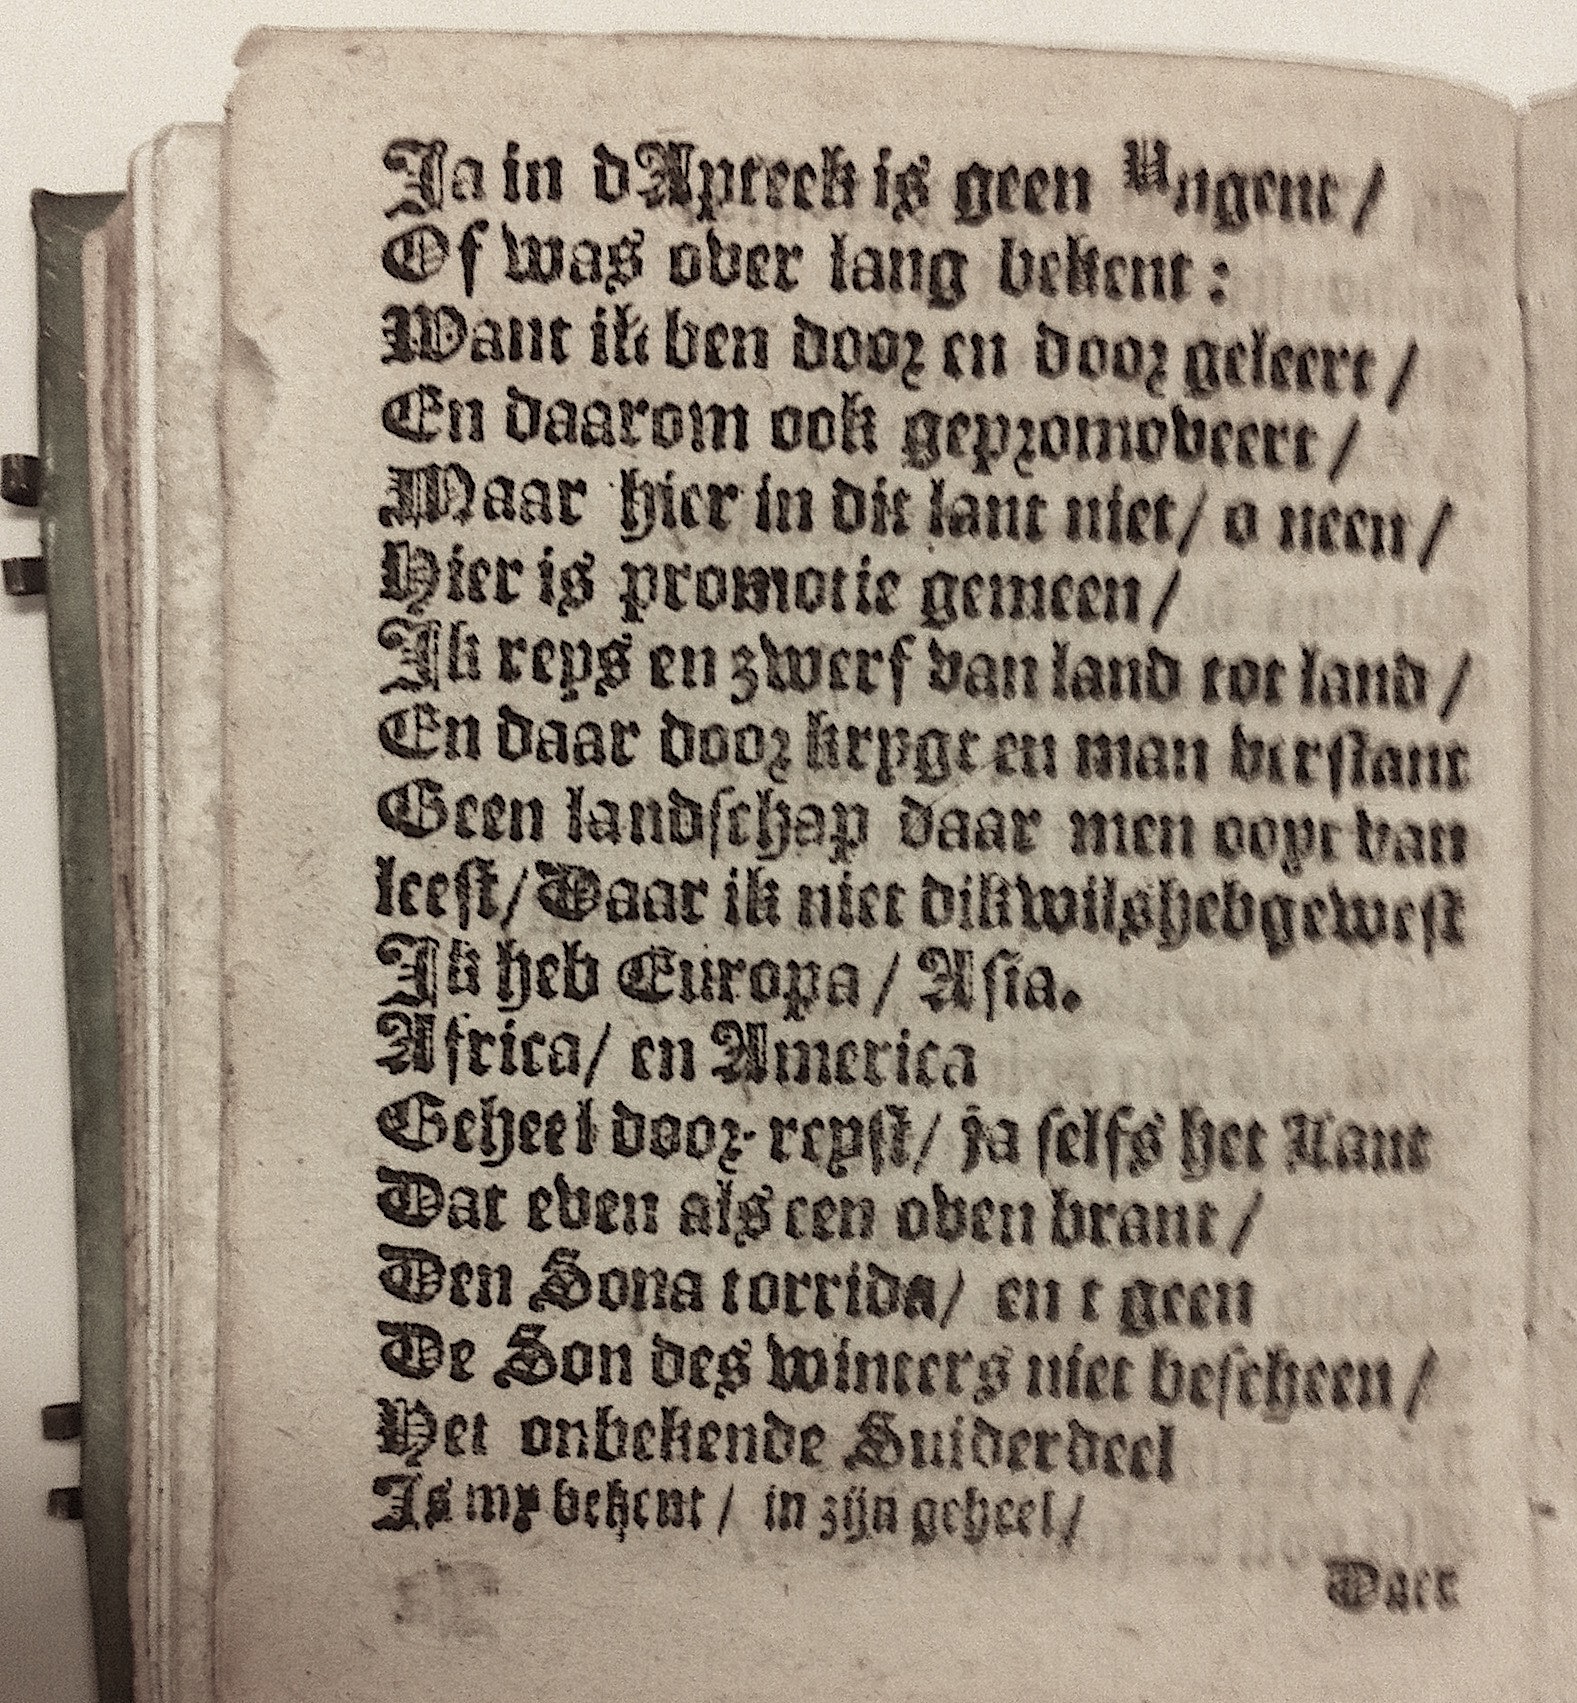 Ja in dApteek is geen Ungent /
Of was over lang bekent :
Want ik ben door en door geleert /
En daarom ook gepromoveert /
Maar hier in dit lant niet / o neen /
Hier is promotie gemeen /
Ik reys en zwerf van land tot land /
En daar door krygt en man verstant
Geen landschap daar men ooyt van
leest / Daar ik niet dikwils heb gewest
Ik heb Europa / Asia.
Africa / en America
Geheel door-reyst / ja selfs het Lant
Dat even als een oven brant /
Den Sona torrida / en t geen
De Son des winters niet bescheen /
Het onbekende Suiderdeel
Is my bekent / in zijn geheel /
Daer